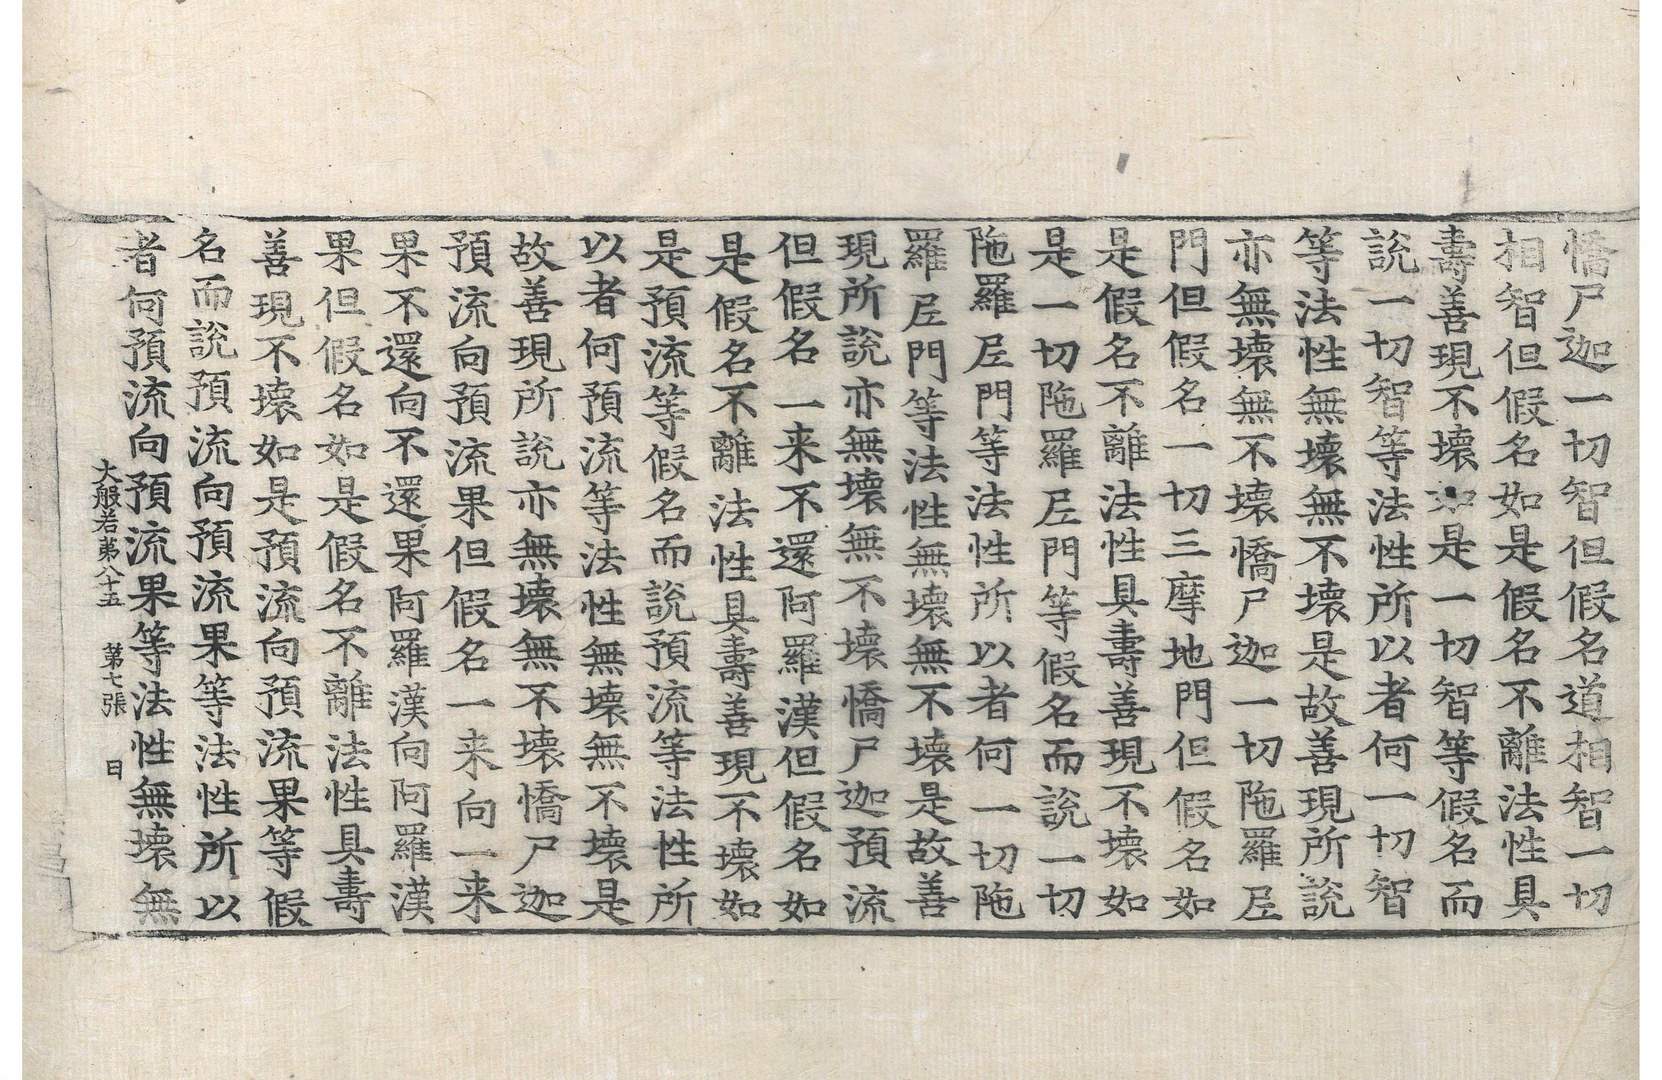 憍尸迦一切智但假名道相智一切
相智但假名如是假名不離法性具
壽善現不壞如是一切智等假名而
說一切智等法性所以者何一切智
等法性無壞無不壞是故善現所說
亦無壞無不壞憍尸迦一切陁羅尼
門但假名一切三摩地門但假名如
是假名不離法性具壽善現不壞如
是一切陁羅尼門等假名而說一切
陁羅尼門等法性所以者何一切陁
羅尼門等法性無壞無不壞是故善
現所說亦無壞無不壞憍尸迦預流
但假名一来不還阿羅漢但假名如
是假名不離法性具壽善現不壞如
是預流等假名而說預流等法性所
以者何預流等法性無壞無不壞是
故善現所說亦無壞無不壞憍尸迦
預流向預流果但假名一来向一来
果不還向不還果阿羅漢向阿羅漢
果但假名如是假名不離法性具壽
善現不壞如是預流向預流果等假
名而說預流向預流果等法性所以
者何預流向預流果等法性無壞無
大般若第八十五 第七張 日